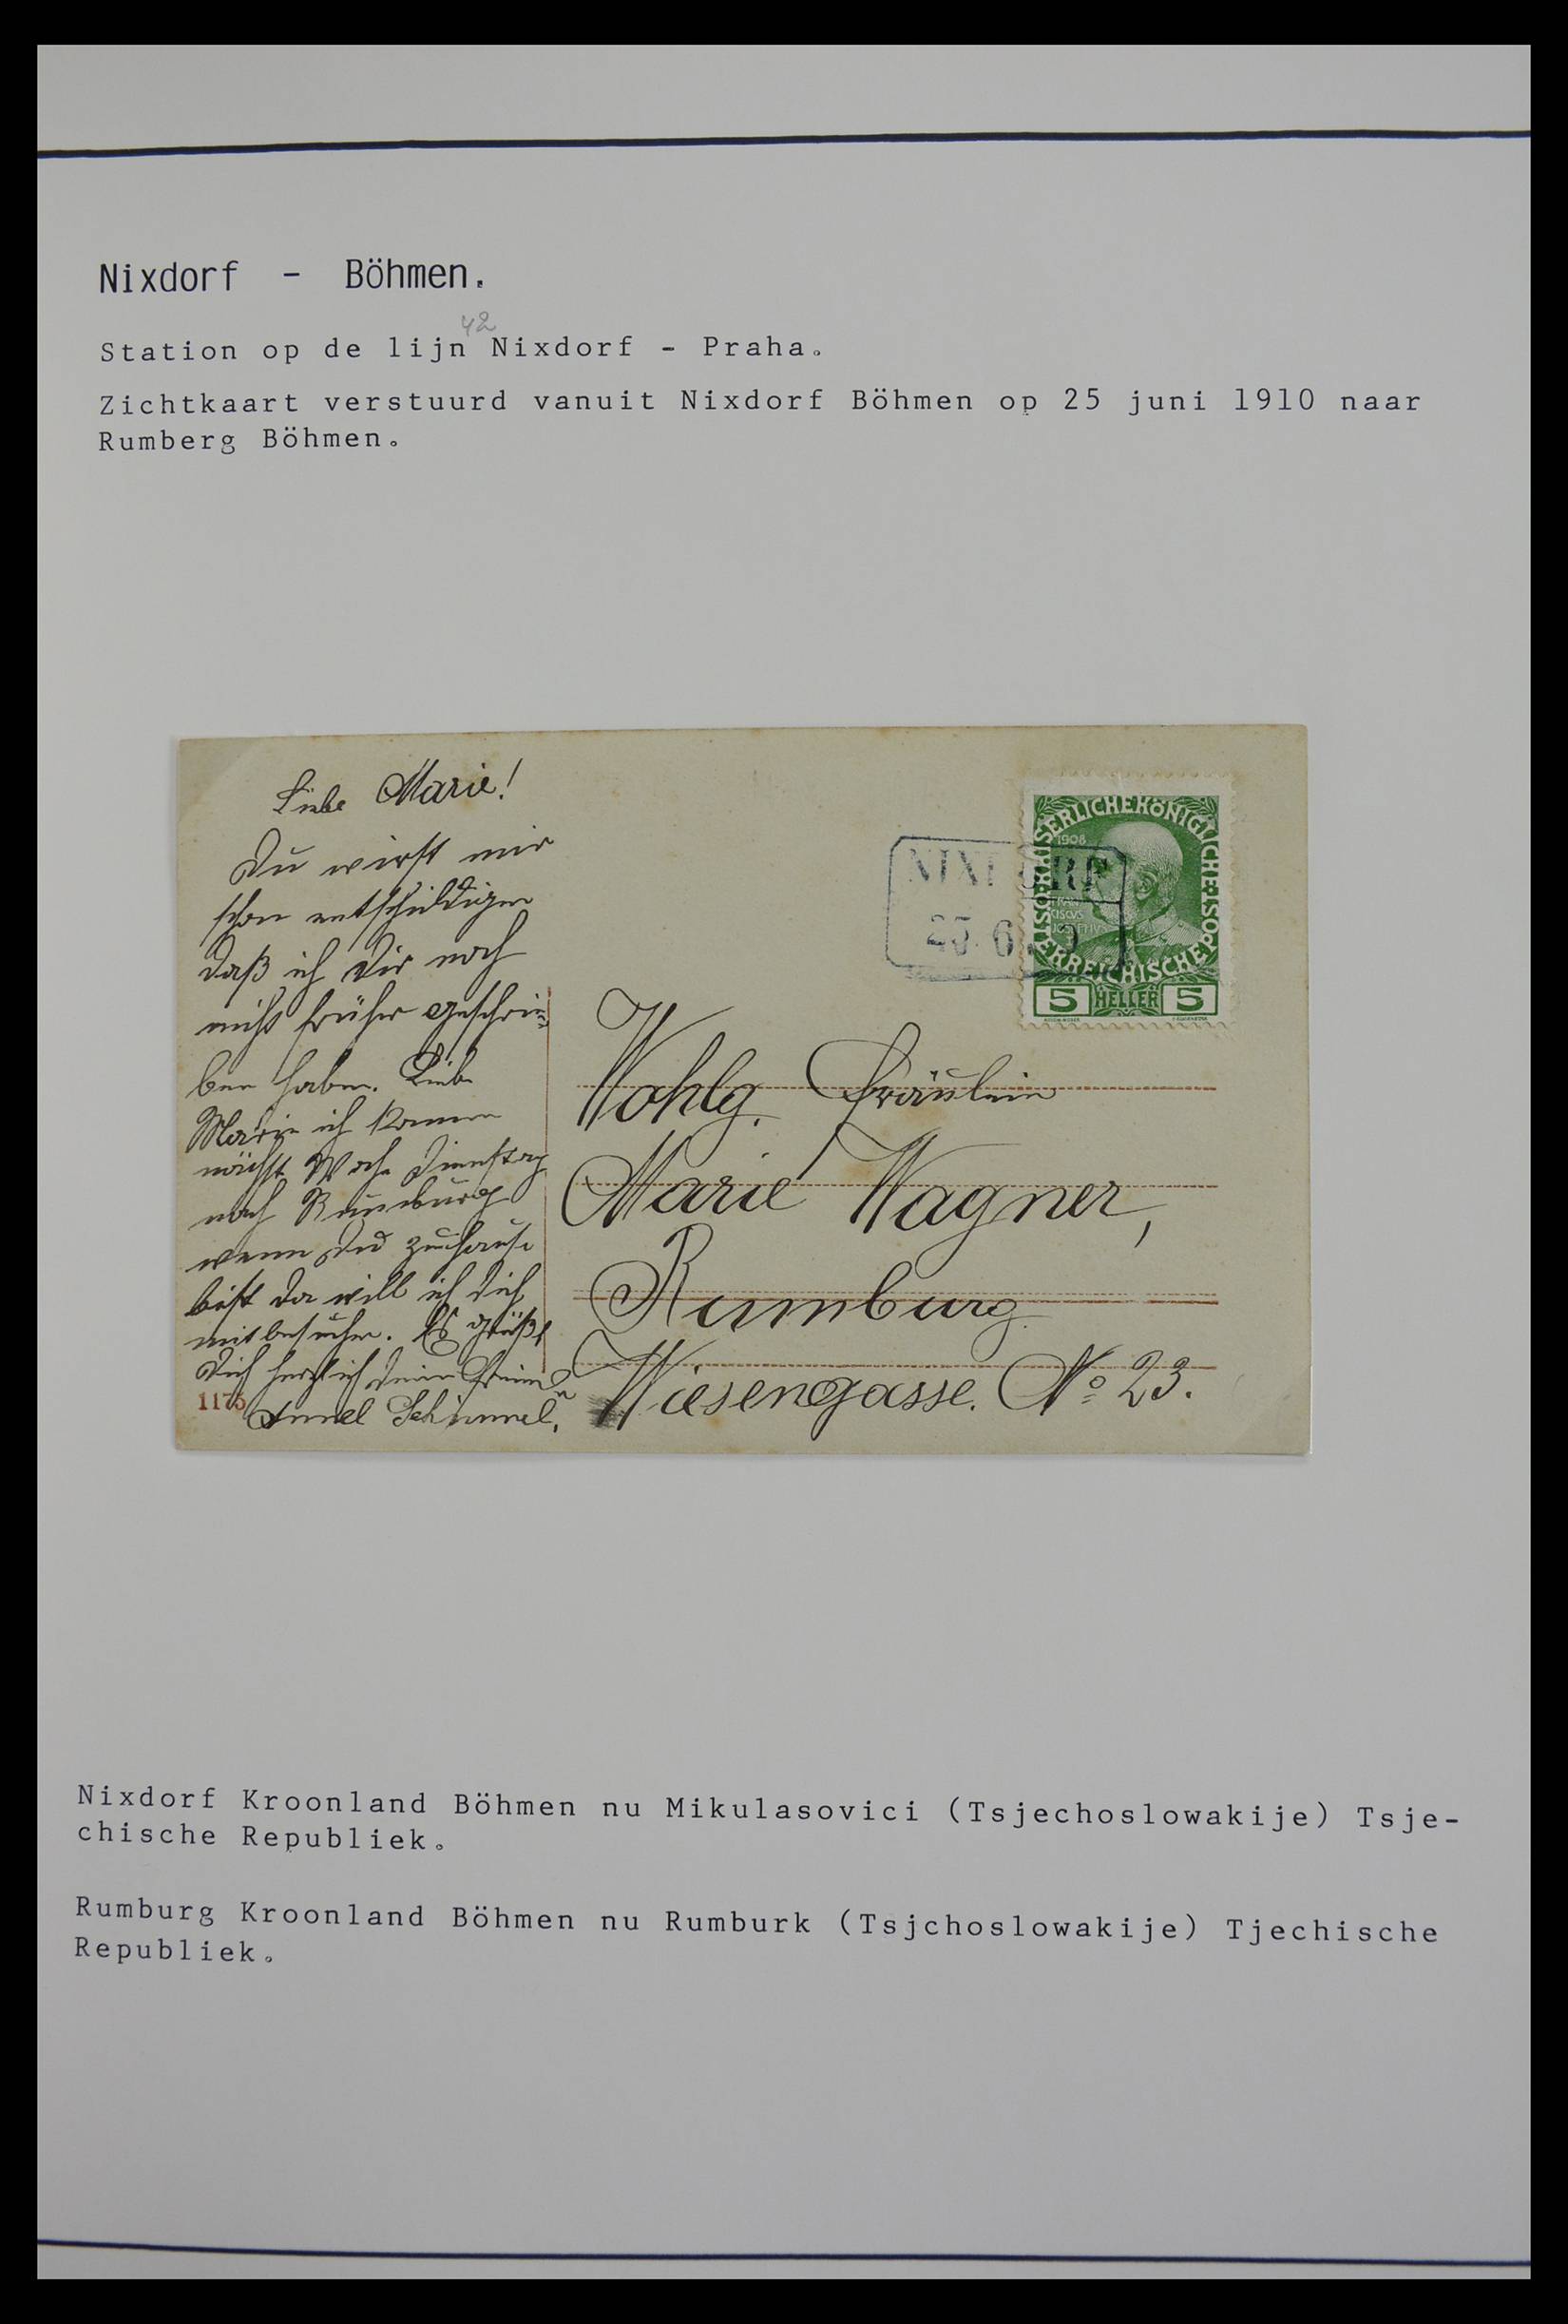 Nixdorf - Böhmen.
42
Station op de lijn Nixdorf - Praha.
Zichtkaart verstuurd vanuit Nixdorf Böhmen op 25 juni 1910 naar
Rumberg Böhmen.
Liebe Marie!
Du wirst mir
schon entschuldigen
daß ich Dir noch
nicht früher geschrie=
ben habe. Liebe
Marie ich komme
nächste Woche Dienstag
nach Rumburg
wenn Du zuhause
bist da will ich Dich
mitbesuchen. Es grüßt
Dich herzlich Deine Freundin
Schimmel.
1175
NIXDORF
25. 6.
KAISERLICHE KÖNIGLICHE ÖSTERREICHISCHE POST
1908
FRAN
CISCVS
JOSEPHVS
5 HELLER 5
Wohlg. Fräulein
Marie Wagner,
Rumburg
Wiesengasse. No 23.
Nixdorf Kroonland Böhmen nu Mikulasovici (Tsjechoslowakije) Tsje-
chische Republiek.
Rumburg Kroonland Böhmen nu Rumburk (Tsjchoslowakije) Tjechische
Republiek.